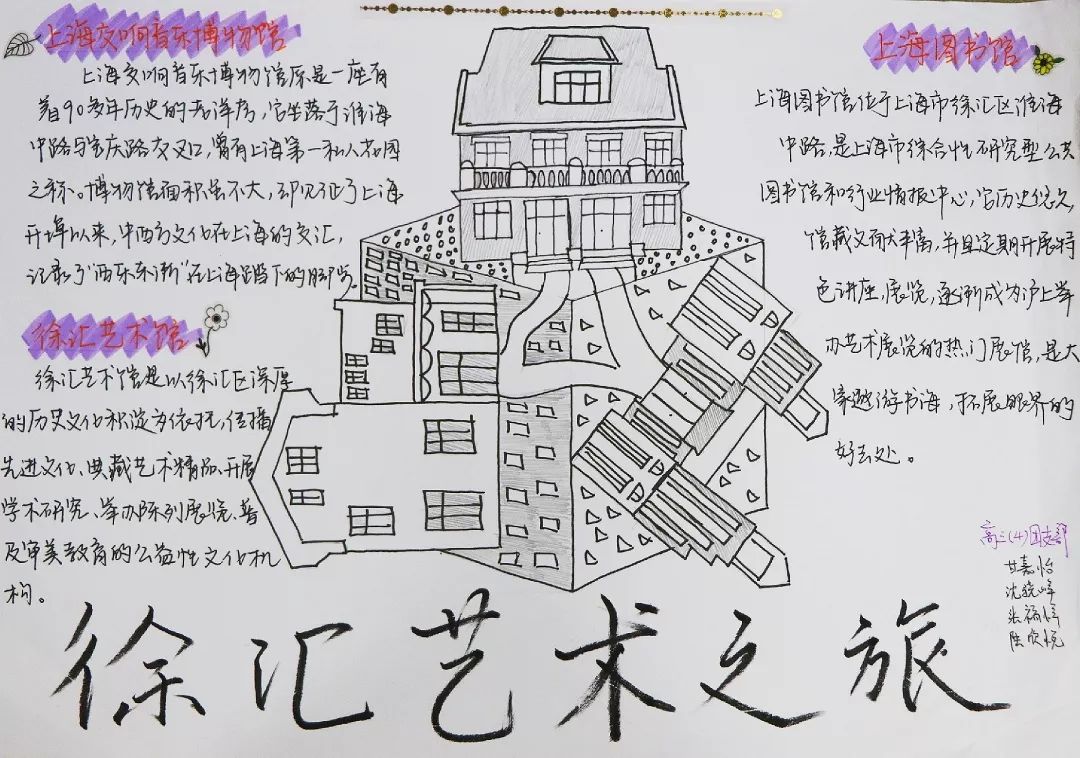 上海交响音乐博物馆
上海交响音乐博物馆原是一座有
着90多年历史的老洋房，它坐落于淮海
中路与宝庆路交叉口，曾有上海第一私人花园
之称。博物馆面积虽不大，却见证了上海
开埠以来，中西方文化在上海的交汇，
记录了“西乐东渐”在上海踏下的脚步。
徐汇艺术馆
徐汇艺术馆是以徐汇区深厚
的历史文化积淀为依托，传播
先进文化、典藏艺术精品、开展
学术研究、举办陈列展览、普
及审美教育的公益性文化机
构。
上海图书馆
上海图书馆位于上海市徐汇区淮海
中路，是上海市综合性研究型公共
图书馆和行业情报中心，它历史悠久，
馆藏文献丰富，并且定期开展特
色讲座、展览，逐渐成为沪上举
办艺术展览的热门展馆，是大
家遨游书海，拓展眼界的
好去处。
高二(4)团支部
甘嘉怡
沈晓峰
张
陆欣悦
徐汇艺术之旅